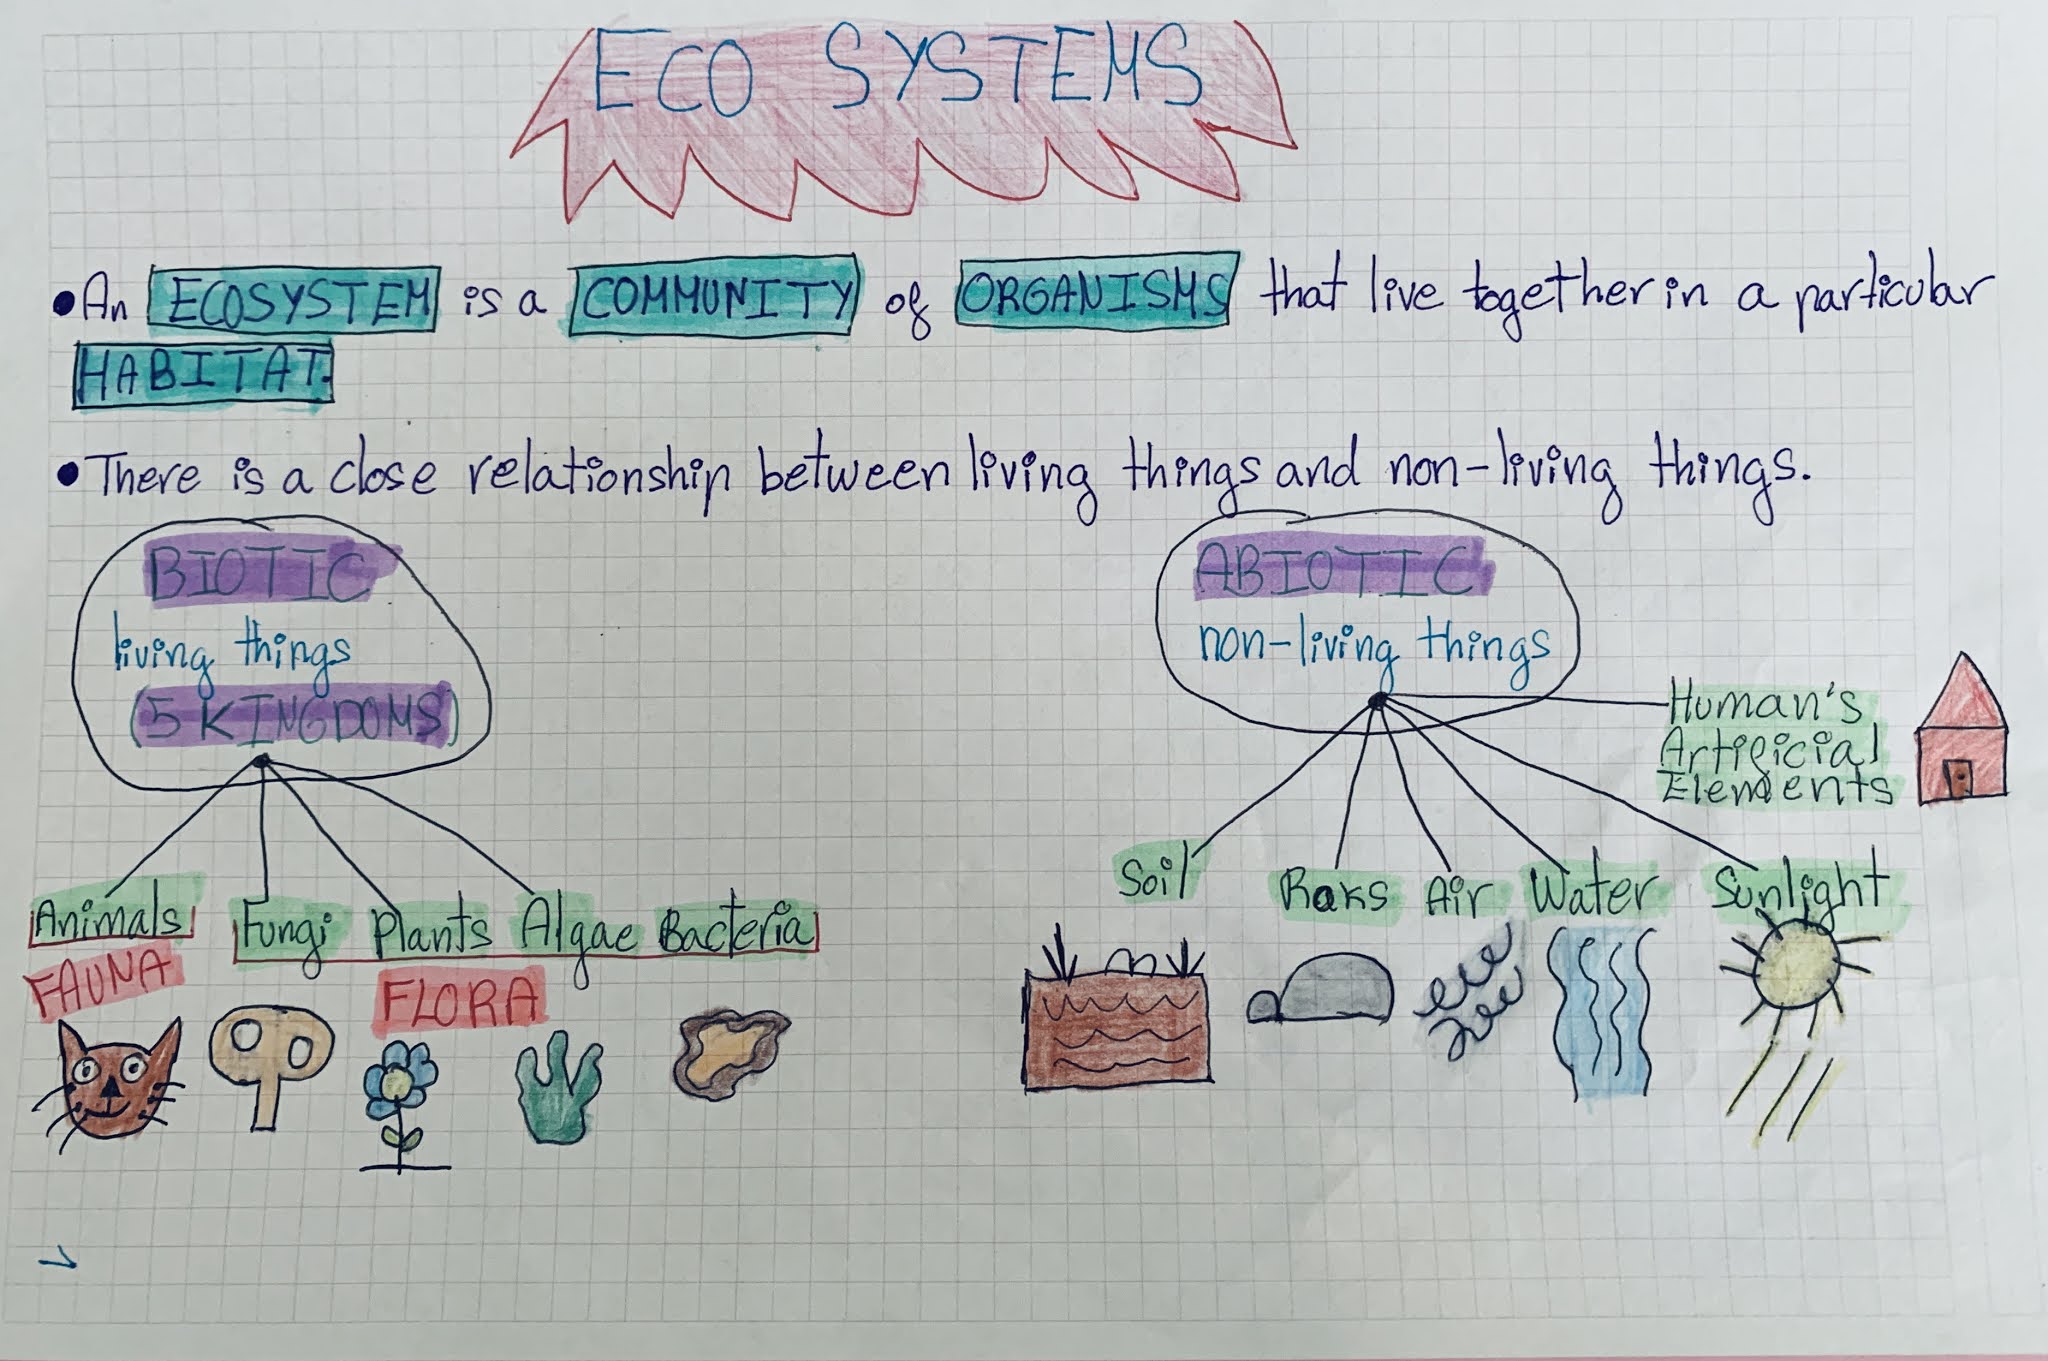 ECO SYSTEMS
• An ECOSYSTEM is a COMMUNITY of ORGANISMS that live together in a particular
HABITAT.
• There is a close relationship between living things and non-living things.
BIOTIC
living things
(5 KINGDOMS)
Animals Fungi Plants Algae Bacteria
FAUNA FLORA
ABIOTIC
non-living things
Human's
Artificial
Elements
Soil Roks Air Water Sunlight
1